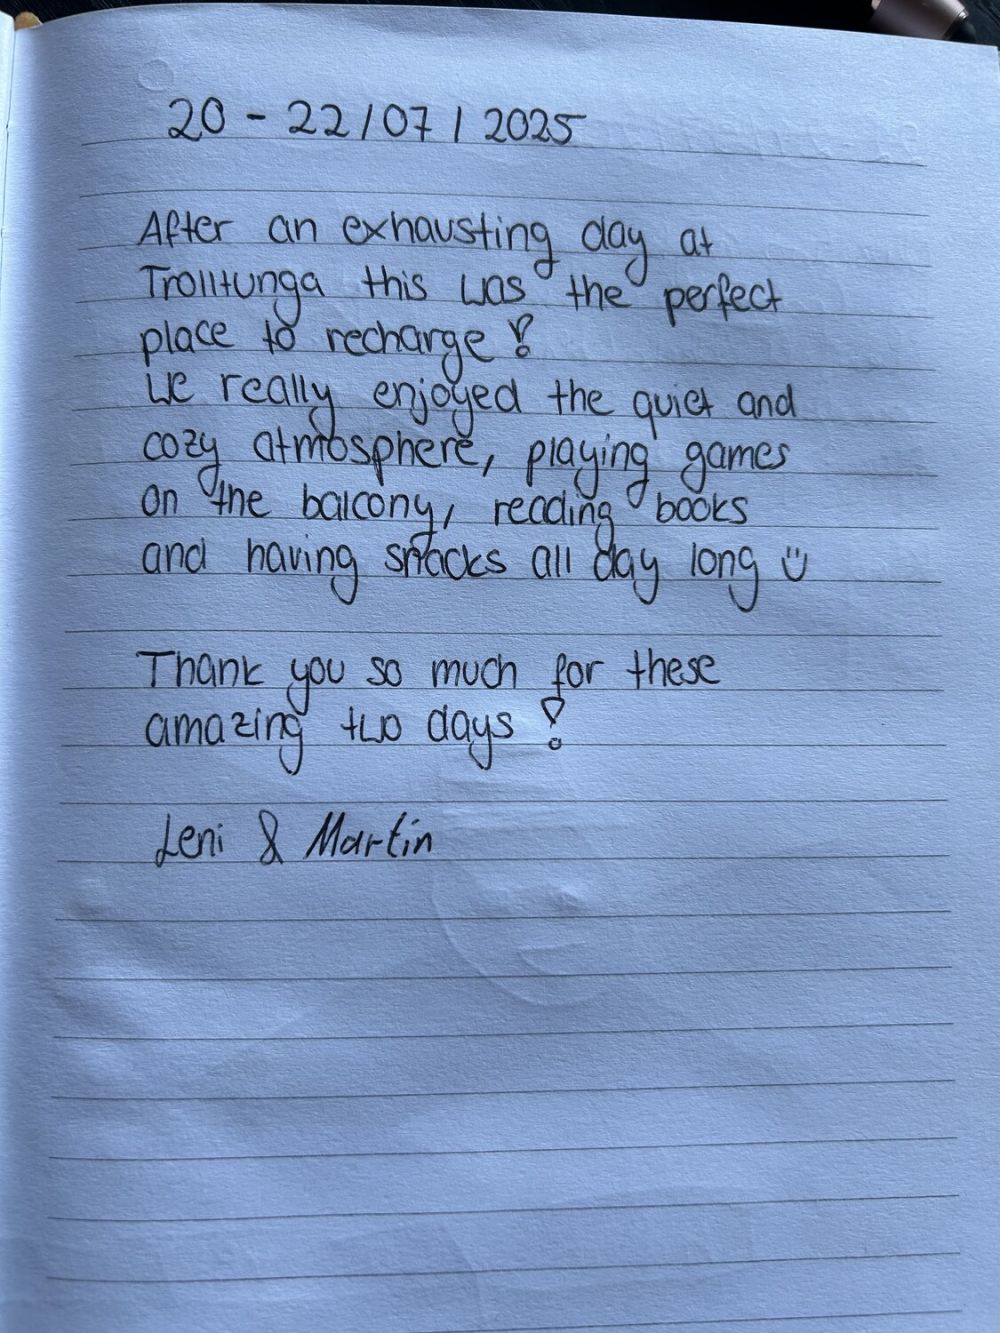 20 - 22/07/2025
After an exhausting day at
Trolltunga this was the perfect
place to recharge!
We really enjoyed the quiet and
cozy atmosphere, playing games
on the balcony, reading books
and having snacks all day long ☺
Thank you so much for these
amazing two days!
Leni & Martin